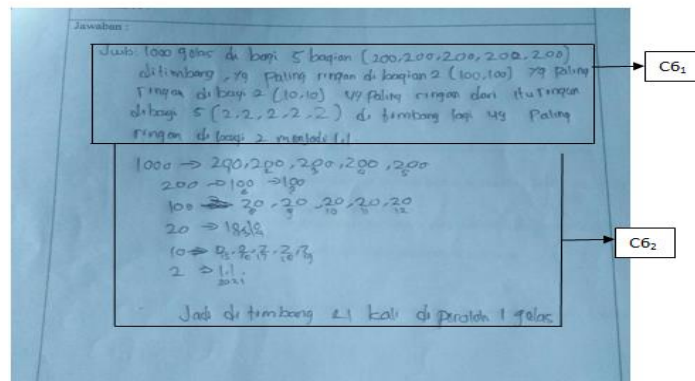 Jawaban :
Jwb: 1000 gelas di bagi 5 bagian (200, 200, 200, 200, 200)
ditimbang, yg paling ringan di bagian 2 (100, 100) yg paling
ringan dibagi 2 (10, 10) yg paling ringan dari itu
dibagi 5 (2, 2, 2, 2, 2) di timbang lagi yg Paling
ringan di bagi 2 menjadi 1.1.
1000 → 200, 200, 200, 200, 200
200 → 100 → 100
100 → 20, 20, 20, 20, 20
8 9 10 11 12
20 → 10, 10
10 → 2, 2, 2, 2, 2
2 → 1.1.
20 21
Jadi di timbang 21 kali di peroleh 1 gelas
C6₁
C6₂